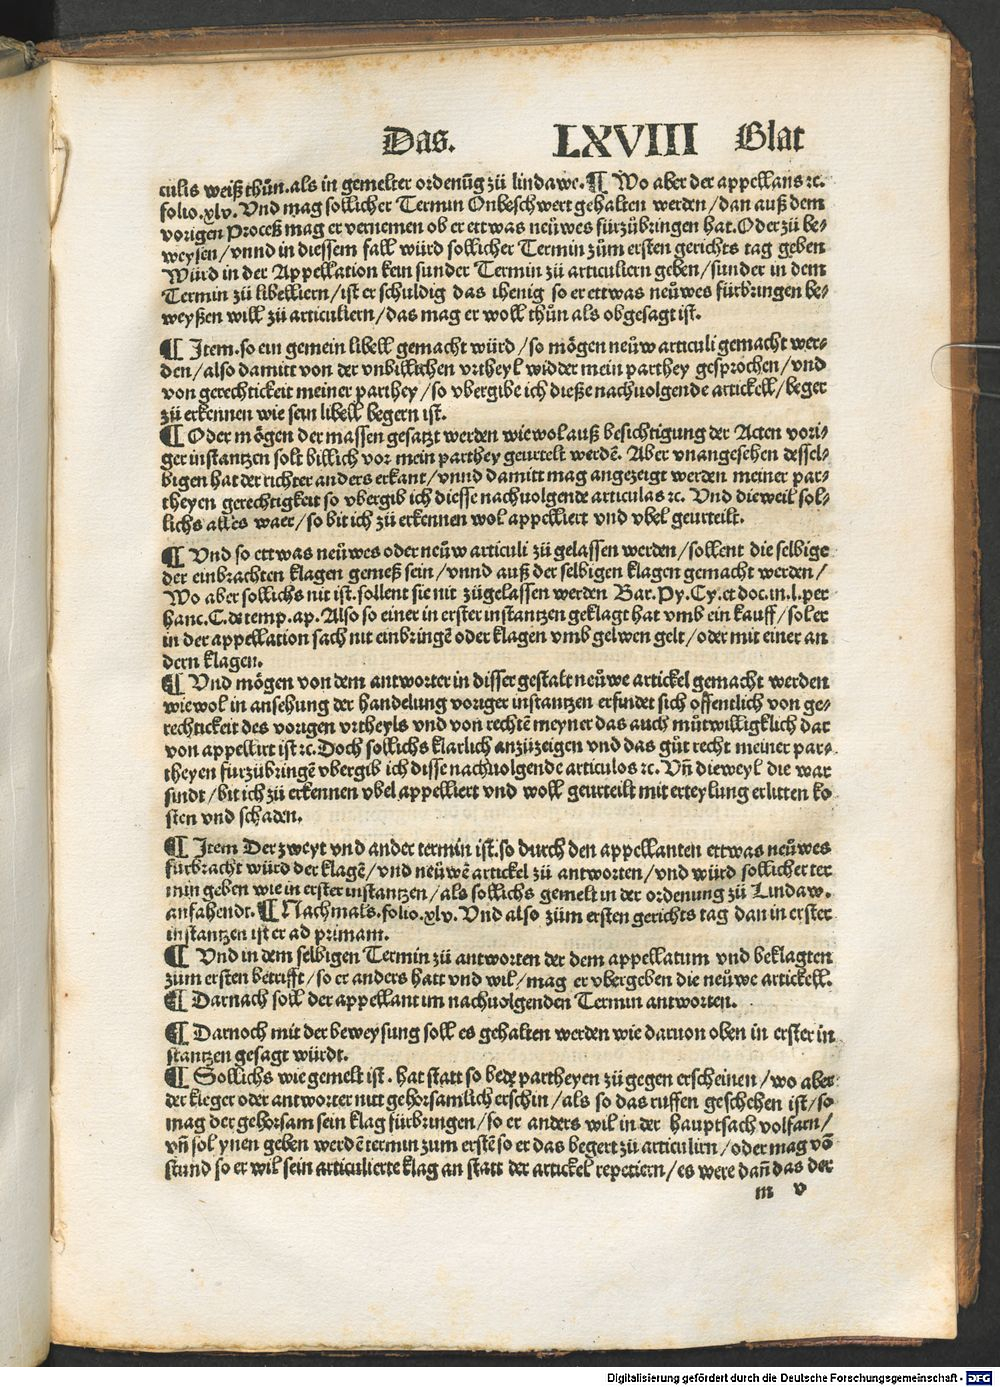 Das. LXVIII Blat
culis weiß thůn. als in gemelter ordenũg zů lindawe. ¶ Wo aber der appellans ꝛc.
folio. xlv. Vnd mag sollicher Termin Onbeschwert gehalten werden / dan auß dem
vorigen Proceß mag er vernemen ob er ettwas neůwes fürzůbringen hat. Oder zů be⸗
weysen / vnnd in diessem fall würd sollicher Termin zům ersten gerichts tag geben
Würd in der Appellation kein sunder Termin zů articuliern geben / sunder in dem
Termin zů libelliern / ist er schuldig das ihenig so er ettwas neůwes fürbringen be⸗
weyßen will zů articuliern / das mag er woll thůn als obgesagt ist.
¶ Item. so ein gemein libell gemacht würd / so mögen neůw articuli gemacht wer⸗
den / also damitt von der vnbillichen vrtheyl widder mein parthey gesprochen / vnd
von gerechtickeit meiner parthey / so vbergibe ich dieße nachuolgende artickell / beger
zů erkennen wie sein libell begern ist.
¶ Oder mögen der massen gesatzt werden wiewol auß besichtigung der Acten vori⸗
ger instantzen solt billich vor mein parthey geurtelt werdẽ. Aber vnangesehen dessel⸗
bigen hat der richter anders erkant / vnnd damitt mag angezeigt werden meiner par⸗
theyen gerechtigkeit so vbergib ich diesse nachuolgende articulas ꝛc. Vnd dieweil sol⸗
lichs alles waer / so bit ich zů erkennen wol appelliert vnd vbel geurteilt.
¶ Vnd so ettwas neůwes oder neůw articuli zů gelassen werden / sollent die selbige
der einbrachten klagen gemeß sein / vnnd auß der selbigen klagen gemacht werden /
Wo aber sollichs nit ist. sollent sie nit zůgelassen werden Bar. Py. Cy. et doc. in. l. per
hanc. C. de temp. ap. Also so einer in erster instantzen geklagt hat vmb ein kauff / sol er
in der appellation sach nit einbringẽ oder klagen vmb gelwen gelt / oder mit einer an
dern klagen.
¶ Vnd mögen von dem antworter in disser gestalt neůwe artickel gemacht werden
wiewol in ansehung der handelung voriger instantzen erfindet sich offentlich von ge⸗
rechtickeit des vorigen vrtheyls vnd von rechtẽ meyner das auch můtwilligklich dar
von appellirt ist ꝛc. Doch sollichs klarlich anzůzeigen vnd das gůt recht meiner par⸗
theyen fürzůbringẽ vbergib ich disse nachuolgende articulos ꝛc. Vñ dieweyl die war
sindt / bit ich zů erkennen vbel appelliert vnd woll geurteilt mit erteylung erlitten ko
sten vnd schaden.
¶ Item Der zweyt vnd ander termin ist. so durch den appellanten ettwas neůwes
fürbracht würd der klagẽ / vnd neůwẽ artickel zů antworten / vnd würd sollicher ter
min geben wie in erster instantzen / als sollichs gemelt in der ordenung zů Lindaw.
anfahendt. ¶ Nachmals. folio. xlv. Vnd also zům ersten gerichts tag dan in erster
instantzen ist er ad primam.
¶ Vnd in dem selbigen Termin zů antworten der dem appellatum vnd beklagten
zum ersten betrifft / so er anders hatt vnd wil / mag er vbergeben die neůwe artickell.
¶ Darnach soll der appellant im nachuolgenden Termin antworten.
¶ Darnoch mit der beweysung soll es gehalten werden wie daruon oben in erster in
stantzen gesagt würdt.
¶ Sollichs wie gemelt ist. hat statt so bede partheyen zů gegen erscheinen / wo aber
der kleger oder antworter nitt gehorsamlich erschin / als so das ruffen geschehen ist / so
mag der gehorsam sein klag fürbringen / so er anders wil in der hauptsach volfarn /
vñ sol ynen geben werdẽ termin zum erstẽ so er das begert zů articulirn / oder mag võ
stund so er wil sein articulierte klag an statt der artickel repetiern / es were dañ das der
m v
Digitalisierung gefördert durch die Deutsche Forschungsgemeinschaft - DFG